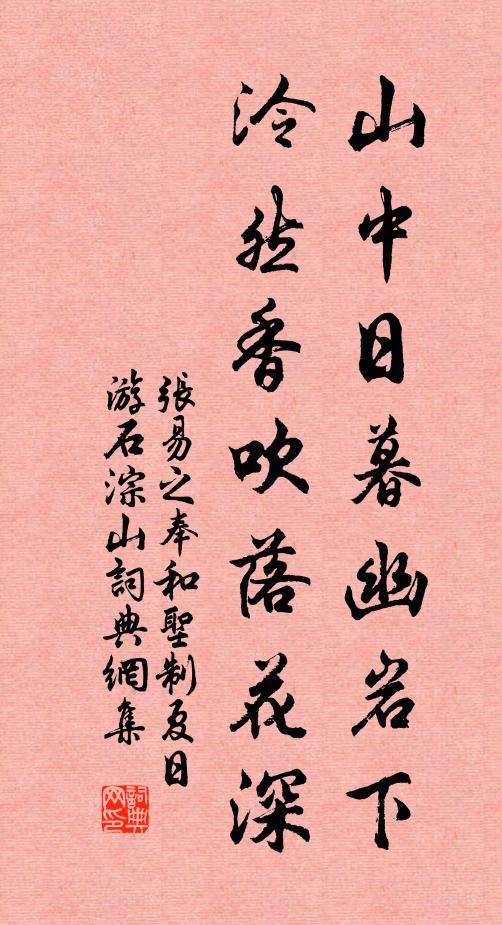 山中日暮幽岩下
泠然香吹落花深
張易之奉和聖制夏日
游石淙山詞典網集
詞典網印